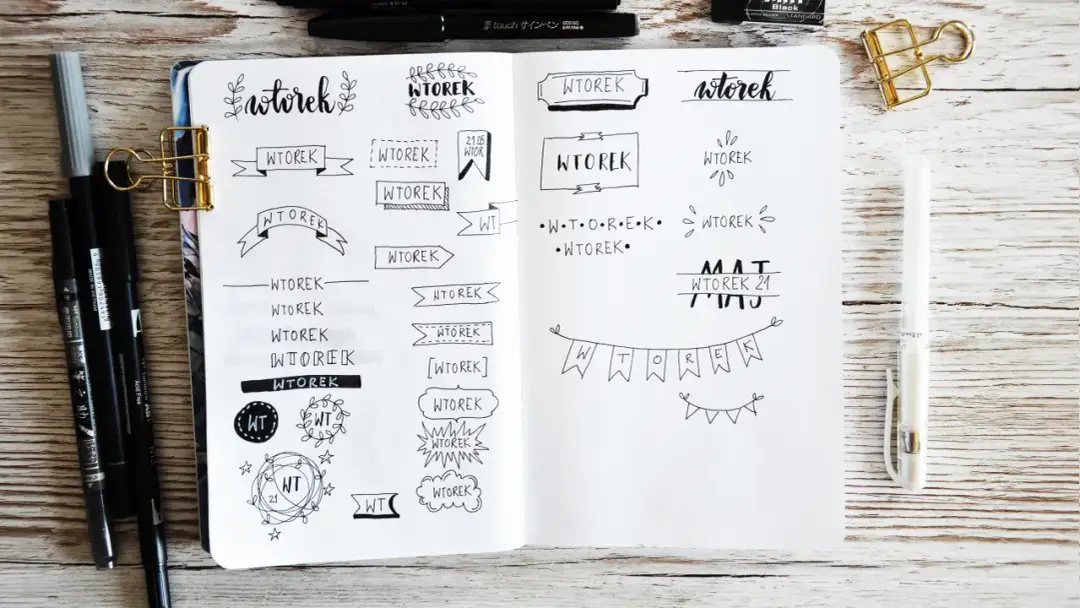 touch サインペン
Black
STANDARD
wtorek
WTOREK
WTOREK
WTOREK
21.05
WTOR
WTOREK
WT
WTOREK
WTOREK
WTOREK
WTOREK
WTOREK
WTOREK
WTOREK
WTOREK
WTOREK
[WTOREK]
WTOREK
WTOREK
WTOREK
WT
WT
WT
21
WT
WTOREK
wtorek
WTOREK
WTOREK
•W•T•O•R•E•K•
•WTOREK•
WTOREK
MAJ
WTOREK 21
WTOREK